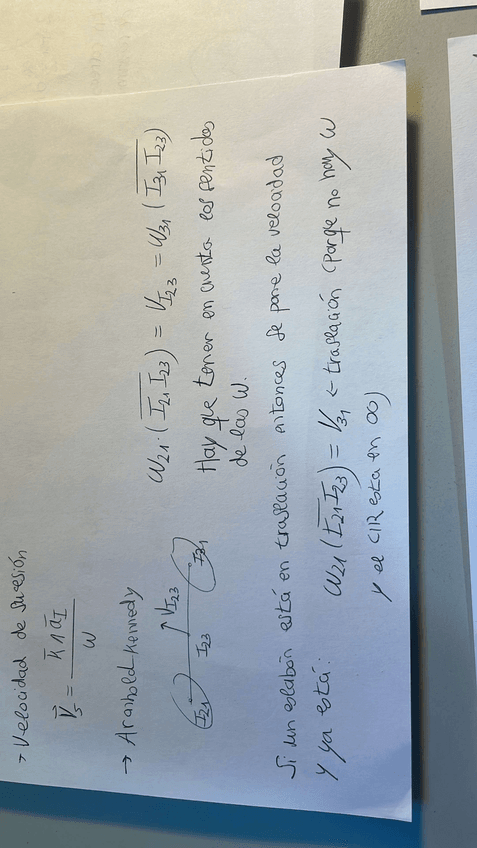 → Velocidad de sucesión
V⃗s = (k̄ ∧ ā_I) / ω
→ Aranhold-Kennedy
I21 I23 V_I23 I31
ω21 · (I21 I23) = V_I23 = ω31 (I31 I23)
Hay que tener en cuenta los sentidos
de las ω.
Si un eslabón está en traslación entonces se pone la velocidad
y ya está: ω21 (I21 I23) = V31 ← traslación (porque no hay ω
y el CIR esta en ∞)